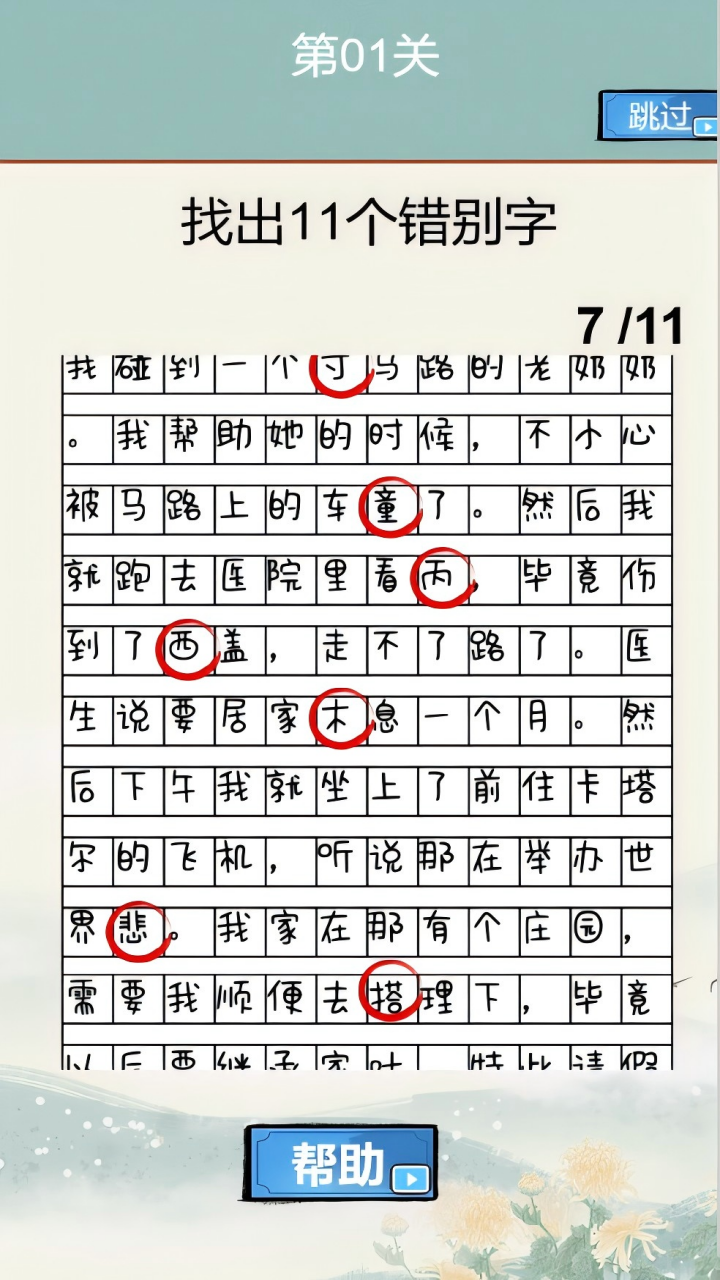 第01关
跳过
找出11个错别字
7 /11
我碰到一个寸马路的老奶奶
。我帮助她的时候，不小心
被马路上的车童了。然后我
就跑去医院里看丙，毕竟伤
到了西盖，走不了路了。医
生说要居家木息一个月。然
后下午我就坐上了前住卡塔
尔的飞机，听说那在举办世
界悲。我家在那有个庄园，
需要我顺便去搭理下，毕竟
以后要继承家叶 特此请假
帮助